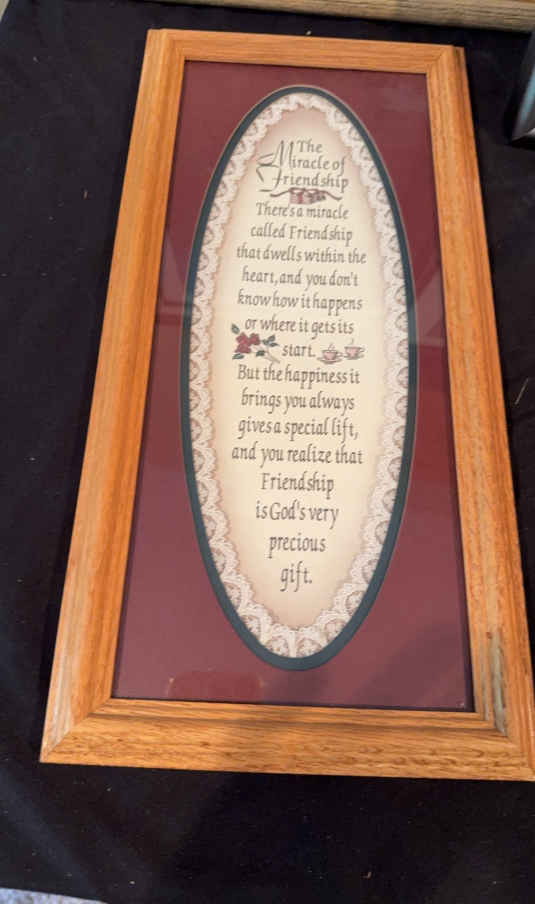 The
Miracle of
Friendship
There's a miracle
called Friendship
that dwells within the
heart, and you don't
know how it happens
or where it gets its
start.
But the happiness it
brings you always
gives a special lift,
and you realize that
Friendship
is God's very
precious
gift.